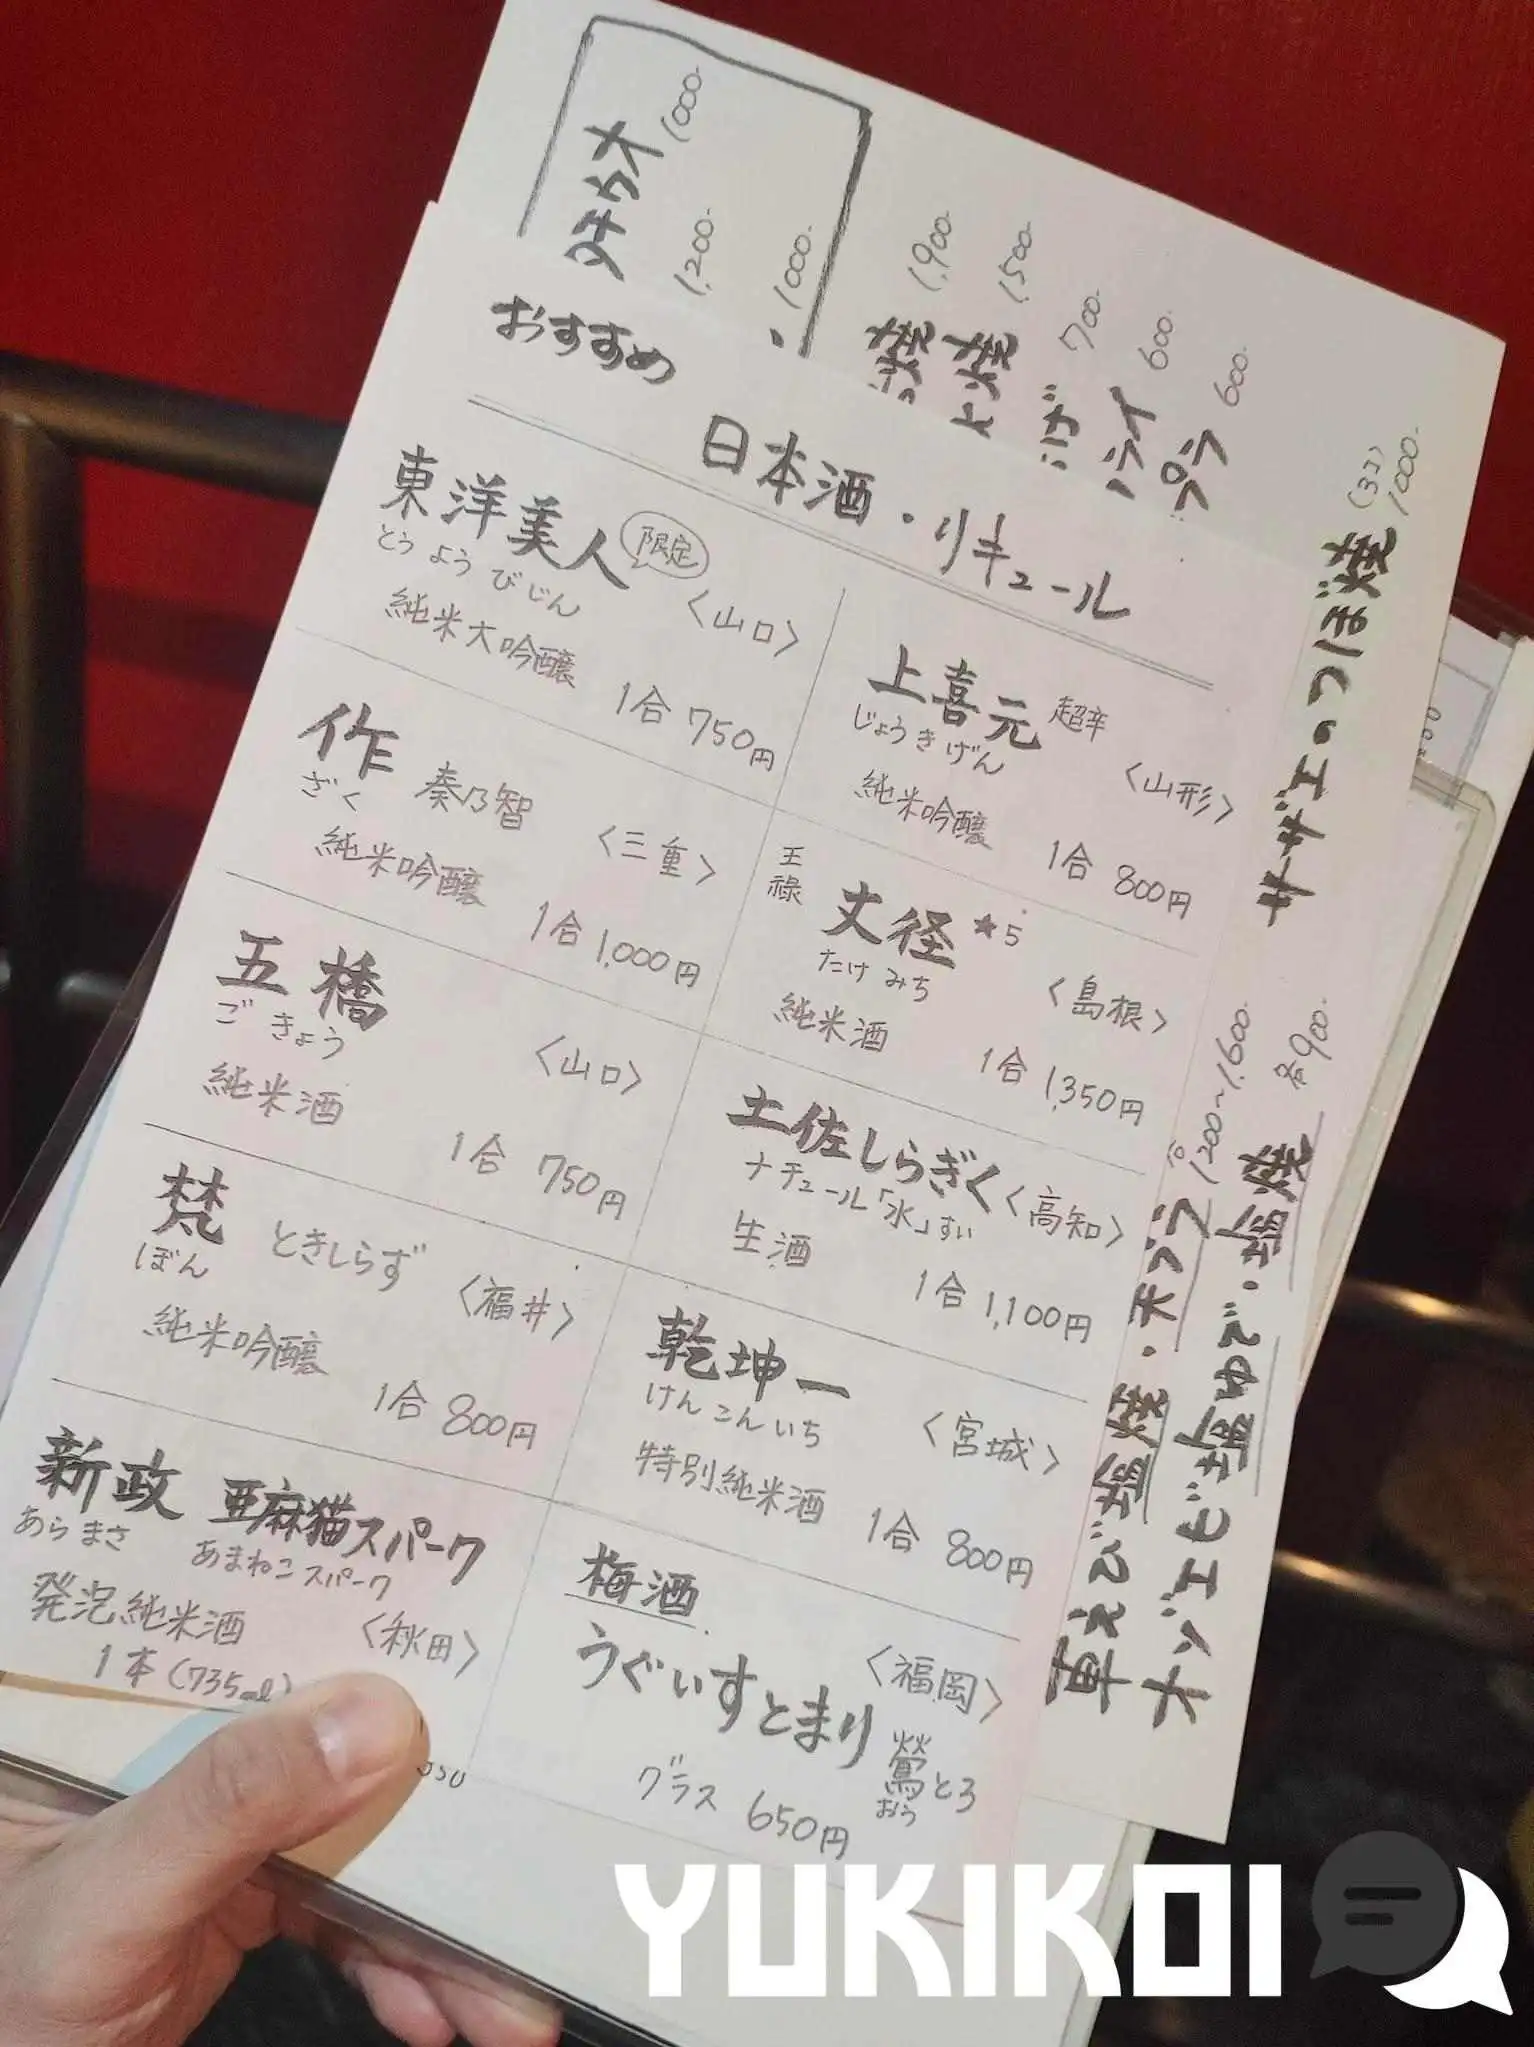 1000-
1,200-
1000-
おすすめ
1,900-
1,500-
700-
600-
600-
焼
焼
げ
フライ
プラ
サザエのつぼ焼
(3コ)
1000-
車えび塩焼・天プラ
1200~1,600-
オゾエビ塩ゆで・塩焼
各900-
日本酒・リキュール
東洋美人
限定
とうようびじん
〈山口〉
純米大吟醸
1合 750円
作 奏乃智
ざく
〈三重〉
純米吟醸
1合 1,000円
五橋
ごきょう
〈山口〉
純米酒
1合 750円
梵 ときしらず
ぼん
〈福井〉
純米吟醸
1合 800円
新政 亜麻猫スパーク
あらまさ あまねこスパーク
発泡純米酒
〈秋田〉
1本(735ml)
上喜元 超辛
じょうきげん
〈山形〉
純米吟醸
1合 800円
王祿
丈径 ★5
たけみち
〈島根〉
純米酒
1合 1,350円
土佐しらぎく
〈高知〉
ナチュール「水」すい
生酒
1合 1,100円
乾坤一
けんこんいち
〈宮城〉
特別純米酒
1合 800円
梅酒
〈福岡〉
うぐいすとまり
鶯とろ
おう
グラス 650円
YUKIKOI